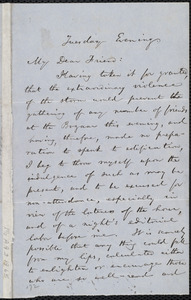 Tuesday Evening.
My Dear Friend:
Having taken it for granted,
that the extraordinary violence
of the storm would prevent the
gathering of any number of friends
at the Bazaar this evening, and
having, therefore, made no prepa-
ration to speak to edification,
I beg to throw myself upon the
indulgence of such as may be
present, and to be excused for
non-attendance, especially in
view of the lateness of the hour,
and of a night's editorial
labor before me. It is scarcely
possible that any thing could fall
from my lips, calculated either
to enlighten or encourage those
who are so well-